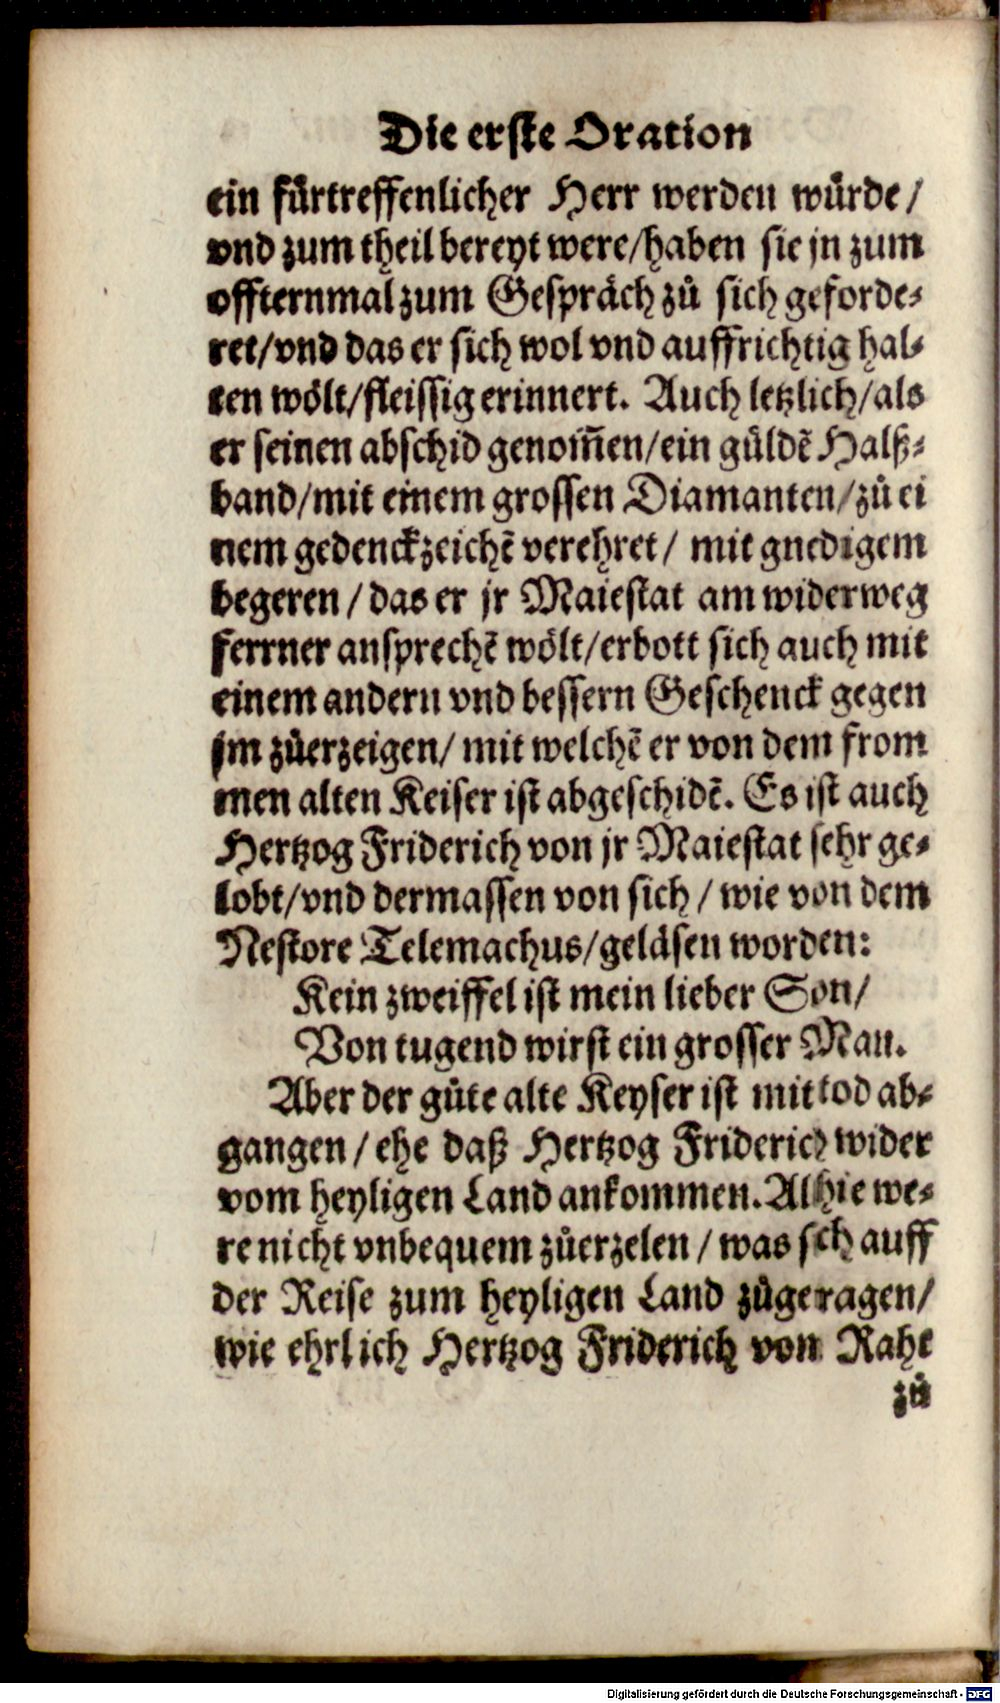 Die erste Oration
ein fürtreffenlicher Herr werden würde/
vnd zum theil bereyt were/haben sie jn zum
offternmal zum Gespräch zů sich geforde⸗
ret/vnd das er sich wol vnd auffrichtig hal⸗
ten wölt/fleissig erinnert. Auch letzlich/als
er seinen abschid genom̃en/ein güldẽ Halß⸗
band/mit einem grossen Diamanten/zů ei
nem gedenckzeichẽ verehret/ mit gnedigem
begeren/das er jr Maiestat am widerweg
ferrner ansprechẽ wölt/erbott sich auch mit
einem andern vnd bessern Geschenck gegen
jm zůerzeigen/ mit welchẽ er von dem from
men alten Keiser ist abgeschidẽ. Es ist auch
Hertzog Friderich von jr Maiestat sehr ge⸗
lobt/vnd dermassen von sich / wie von dem
Nestore Telemachus/geläsen worden:
Kein zweiffel ist mein lieber Son/
Von tugend wirst ein grosser Man.
Aber der gůte alte Keyser ist mit tod ab⸗
gangen / ehe daß Hertzog Friderich wider
vom heyligen Land ankommen. Alhie we⸗
re nicht vnbequem zůerzelen / was sich auff
der Reise zum heyligen Land zůgetragen/
wie ehrlich Hertzog Friderich von Raht
zů
Digitalisierung gefördert durch die Deutsche Forschungsgemeinschaft - DFG